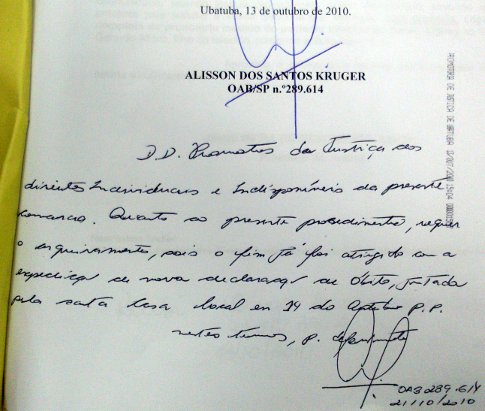 Ubatuba, 13 de outubro de 2010.
ALISSON DOS SANTOS KRUGER
OAB/SP n.º289.614
D.D. Promotres da Justiça dos
direitos Individuais e Indisponíveis da presente
comarca. Quanto ao presente procedimento, requer
o arquivamento, pois o fim já foi atingido com a
expedição de nova declaração de Óbito, juntada
pela santa Casa local em 14 do P.P.
netes termos, p. deferimento
OAB 289.614
21/10/2010